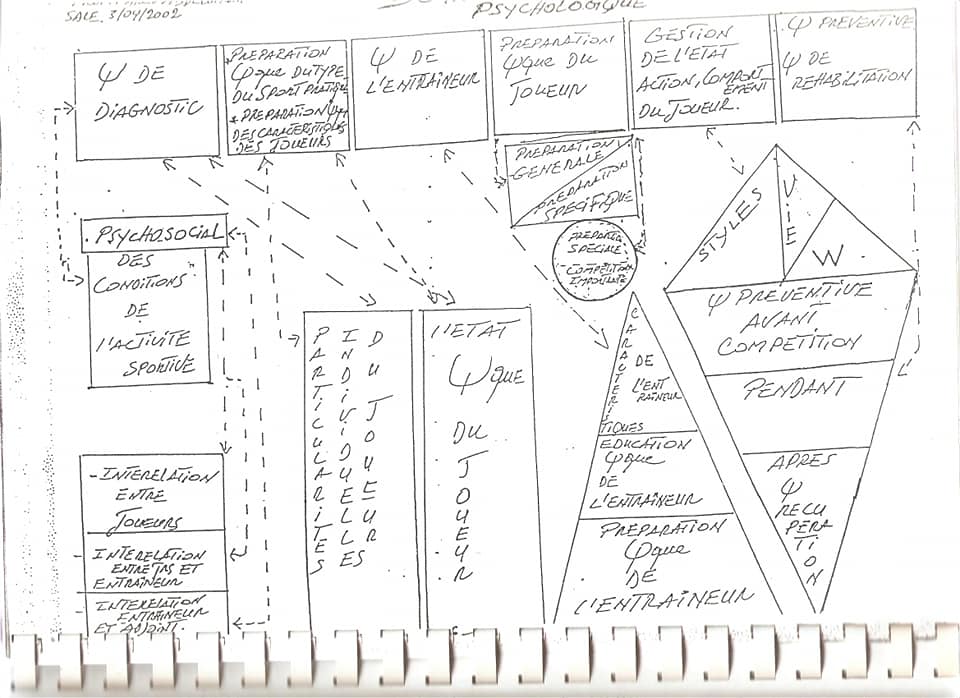 SALE, 3/04/2002
PSYCHOLOGIQUE
Ψ DE
DIAGNOSTIC
PREPARATION
Ψque DU TYPE
DU SPORT PRATIQUE
+ PREPARATION Ψque
DES CARACTERISTIQUES
DES JOUEURS
Ψ DE
L'ENTRAÎNEUR
PREPARATION
Ψque DU
JOUEUR
GESTION
DE L'ETAT
ACTION, COMPORT
EMENT
DU JOUEUR.
Ψ PREVENTIVE
Ψ DE
REHABILITATION
PREPARATION
GENERALE
PREPARATION
SPECIFIQUE
SPECIALE
COMPETITION
IMPORTANTE
STYLES
VIE
W
PSYCHOSOCIAL
DES
CONDITIONS
DE
L'ACTIVITÉ
SPORTIVE
- INTERELATION
ENTRE
JOUEURS
- INTERELATION
ENTRE JRS ET
ENTRAÎNEUR
- INTERELATION
ENTRAÎNEUR
ET ADJOINT.
PARTICULARITES
INDIVIDUELLES
DU JOUEUR
L'ETAT
Ψque
DU
JOUEUR
CARACTERIS
TIQUES
DE
L'ENT
RAÎNEUR
EDUCATION
Ψque
DE
L'ENTRAÎNEUR
PREPARATION
Ψque
DE
L'ENTRAÎNEUR
Ψ PREVENTIVE
AVANT
COMPETITION
PENDANT
APRES
Ψ
RECU
PÉRA
TI
O
N